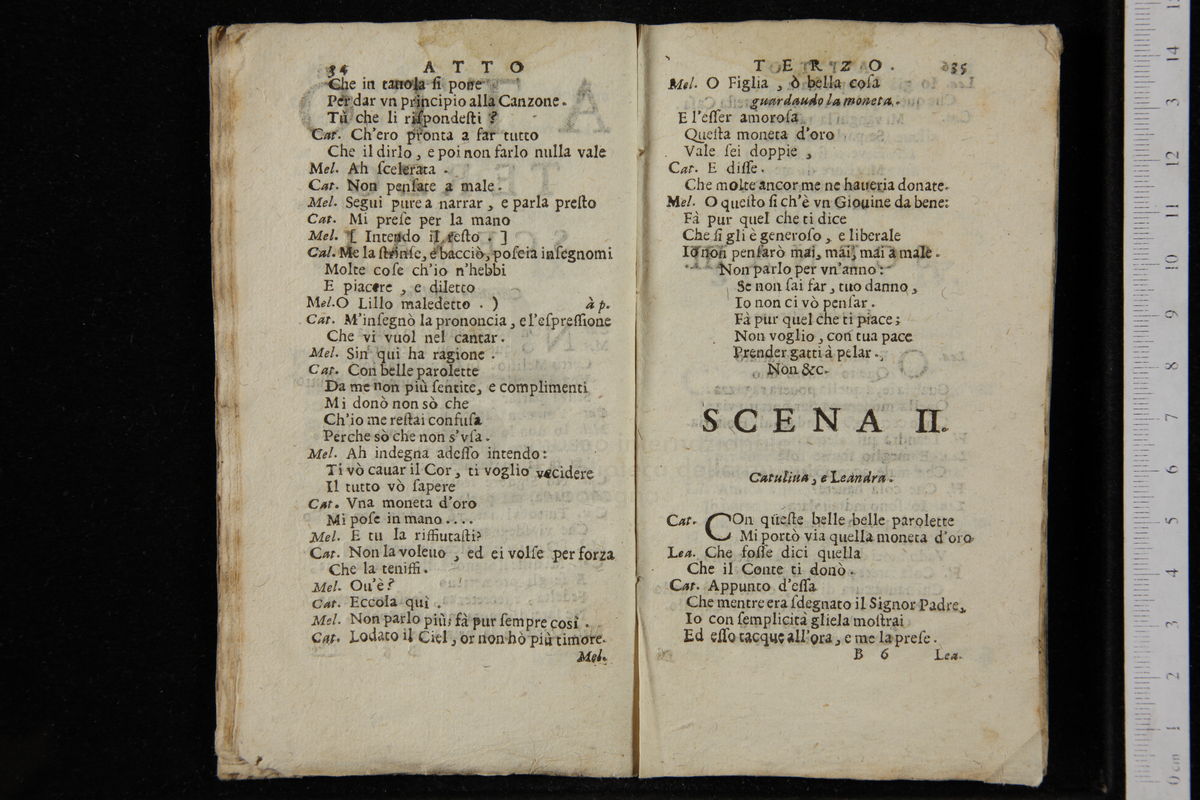 34 ATTO
Che in tauola ſi pone
Per dar vn principio alla Canzone.
Tù che li riſpondeſti ?
Cat. Ch'ero pronta a far tutto
Che il dirlo, e poi non farlo nulla vale
Mel. Ah ſcelerata.
Cat. Non penſate a male.
Mel. Segui pure a narrar, e parla preſto
Cat. Mi preſe per la mano
Mel. [ Intendo il reſto . ]
Cal. Me la ſtrinſe, e bacciò, poſcia inſegnomi
Molte coſe ch'io n'hebbi
E piacere, e diletto
Mel. O Lillo maledetto . ) à p.
Cat. M'inſegnò la prononcia, e l'eſpreſſione
Che vi vuol nel cantar.
Mel. Sin' qui ha ragione.
Cat. Con belle parolette
Da me non più ſentite, e complimenti
Mi donò non sò che
Ch'io me reſtai confuſa
Perche sò che non s'vſa.
Mel. Ah indegna adeſſo intendo:
Ti vò cauar il Cor, ti voglio vccidere
Il tutto vò ſapere
Cat. Vna moneta d'oro
Mi poſe in mano....
Mel. E tu la riffiutaſti?
Cat. Non la voleuo, ed ei volſe per forza
Che la teniſſi.
Mel. Ou'è?
Cat. Eccola quì.
Mel. Non parlo più: fà pur ſempre così.
Cat. Lodato il Ciel, or non hò più timore.
Mel.
TERZO. 35
Mel. O Figlia, ò bella coſa
guardaudo la moneta.
E l'eſſer amoroſa
Queſta moneta d'oro
Vale ſei doppie,
Cat. E diſſe.
Che molte ancor me ne haueria donate.
Mel. O queſto ſi ch'è vn Giouine da bene:
Fà pur quel che ti dice
Che ſi gli è generoſo, e liberale
Io non penſarò mai, mai, mai a male.
Non parlo per vn'anno:
Se non ſai far, tuo danno,
Io non ci vò penſar.
Fà pur quel che ti piace;
Non voglio, con tua pace
Prender gatti à pelar.
Non &c.
SCENA II.
Catulina, e Leandra.
Cat. COn queſte belle belle parolette
Mi portò via quella moneta d'oro
Lea. Che foſſe dici quella
Che il Conte ti donò.
Cat. Appunto d'eſſa
Che mentre era ſdegnato il Signor Padre,
Io con ſemplicità gliela moſtrai
Ed eſſo tacque all'ora, e me la preſe.
B 6 Lea.